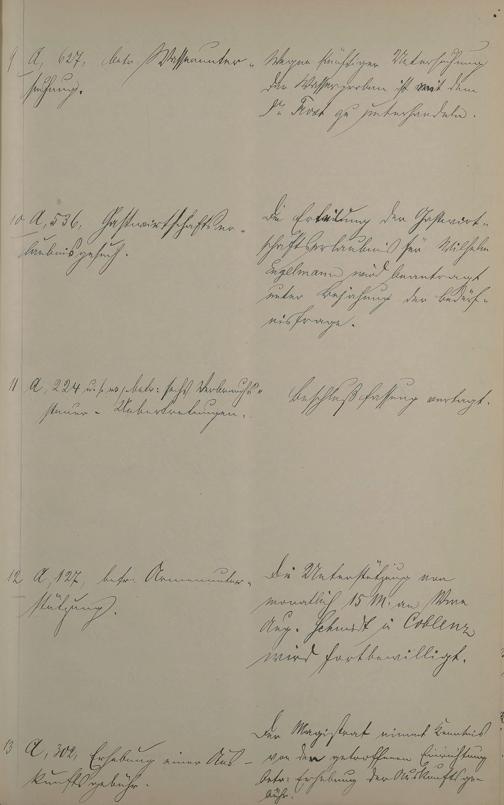 9 A, 627, betr. Wasserunter-
suchung.
Wegen künftiger Untersuchung
der Wasserproben ist mit dem
Dr. zu unterhandeln.
10 A, 536, Gastwirtschaftser-
laubnisgesuch.
Die Erteilung der Gastwirt-
schaftserlaubnis für Wilhelm
wird beantragt
unter Bejahung der Bedürf-
nisfrage.
11 A, 224 u.s.w., betr: sechs Verbrauchs-
steuer- Uebertretungen.
Beschlußfassung vertagt.
12 A, 127, betr. Armenunter-
stützung.
Die Unterstützung von
monatlich 15 M. an Wwe
Aug. Schmidt in Coblenz
wird fortbewilligt.
13 A, 302, Erhebung einer Aus-
kunftsgebühr.
Der Magistrat nimmt Kenntnis
von der getroffenen Einrichtung
betr: Erhebung der Auskunftsge-
bühr.